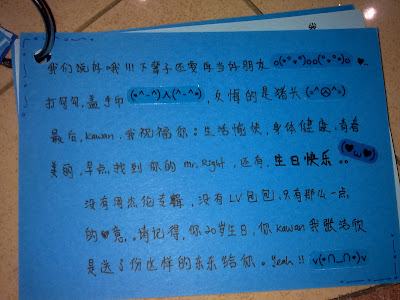 我们说好哦!!!下辈子还要再当好朋友 o(•°▽°•)oo(°•°)o ♥.
打勾勾,盖手印 (•^_^)人(^_^•),反悔的是猪长(^(oo)^)
最后,kawan,我祝福你:生活愉快,身体健康,青春
美丽,早点找到你的mr.Right,还有,生日快乐..
没有周杰伦专辑,没有LV包包,只有那么一点
的♥意。请记得,你20岁生日,你kawan我
是送了份这样的东东给你。Yeah!! v(•∩_∩•)v